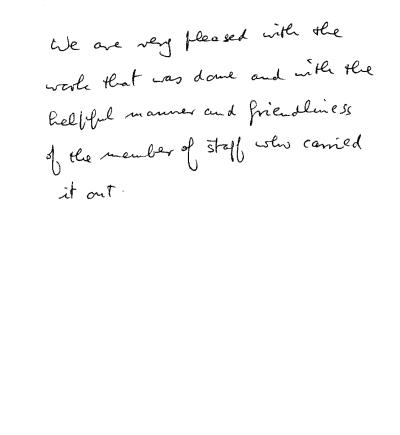 We are very pleased with the
work that was done and with the
helpful manner and friendliness
of the member of staff who carried
it out.